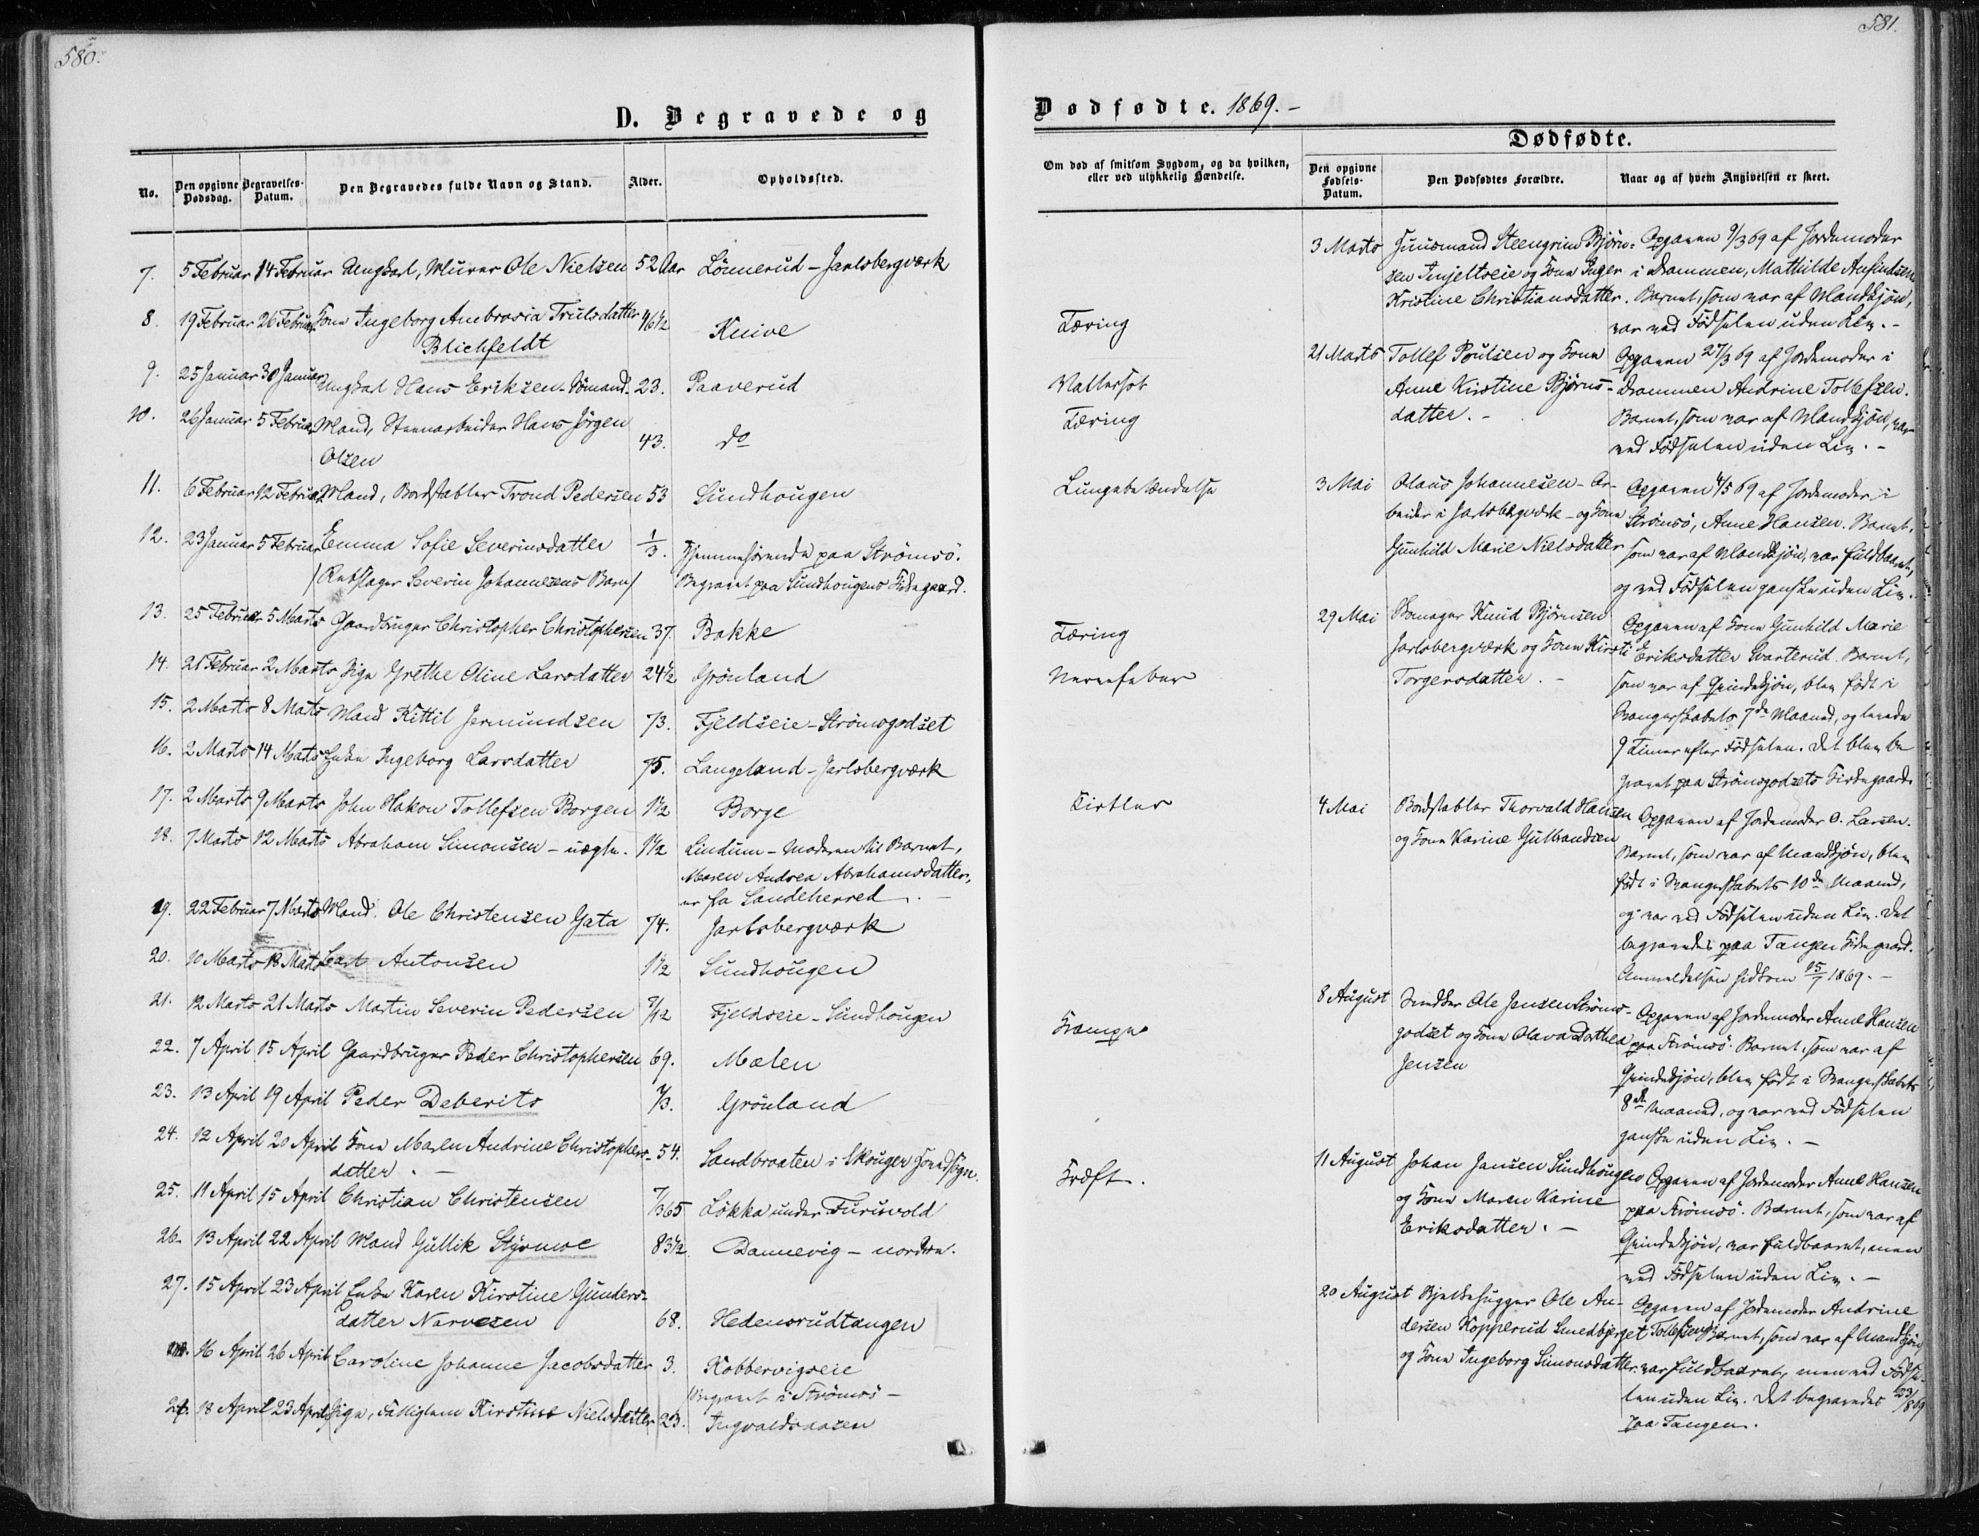 580.
D. Begravede og
No.
Den opgivne Dødsdag.
Begravelses-Datum.
Den Begravedes fulde Navn og Stand.
Alder.
Opholdssted.
7. 5 Februar 14 Februar Ungkarl, Murer Ole Nielsen 52 Aar Lönnerud - Jarlsbergværk
8. 19 Februar 26 Februar Kone Ingeborg Ambrosia Trulsdatter 46½ Knive
Blichfeldt
9. 25 Januar 30 Januar Ungkarl Hans Eriksen - Sömand. 23. Paaverud
10. 26 Januar 5 Februar Mand, Steenarbeider Hans Jörgen
Olsen 43. do
11. 6 Februar 12 Februar Mand, Bordstabler Trond Pedersen 53 Sundhougen
12. 23 Januar 5 Februar Emma Sofie Severinsdatter 1/3. Hjemmehörende paa Strömsö.
/Rebslager Severin Johannesens Barn/ Begravet paa Sundhougens Kirkegaard.
13. 25 Februar 5 Marts Gaardbruger Christopher Christophersen 37. Bakke
14. 21 Februar 2 Marts Pige Grethe Oline Larsdatter 24½ Grönland
15. 2 Marts 8 Marts Mand Kittil Jermundsen 73. Fjeldseie - Strömsgodset
16. 2 Marts 14 Marts Enke Ingeborg Larsdatter 75. Langeland - Jarlsbergværk
17. 2 Marts 9 Marts John Hakon Tollefsen Borgen 1½ Borge
18. 7 Marts 12 Marts Abraham Simonsen - uægte. 1½ Lindum - Moderen til Barnet,
Maren Andrea Abrahamsdatter,
er fra Sandeherred.
19. 22 Februar 7 Marts Mand. Ole Christensen Gata 74. Jarlsbergværk
20. 10 Marts 18 Marts Carl Antonsen 1½ Sundhougen
21. 12 Marts 21 Marts Martin Severin Pedersen 7/12 Fjeldseie - Sundhougen
22. 7 April 15 April Gaardbruger Peder Christophersen 69. Mælen
23. 13 April 19 April Peder Deberitz Grönland
24. 12 April 20 April Kone Maren Andrine Christophers-
datter. - 54. Sandbraaten i Skouger Hovedsogn.
25. 11 April 15 April Christian Christensen 7/365 Lökka under Furuvold
26. 13 April 22 April Mand Gullik Styrmoe 83½. Dannevig - nordre.
27. 15 April 23 April Enke Karen Kirstine Gunders-
datter Narvesen 68. Hedensrudtangen
16 April 26 April Caroline Johanne Jacobsdatter 3. Kobbervigseie
/Begravet i Strömsö -
18 April 23 April Pige, Fattiglem Kirstine Nielsdatter 23. Ingvaldsaasen
581.
Dødfødte. 1869. -
Om død af smitsom Sygdom, og da hvilken, eller ved ulykkelig Hændelse.
Dødfødte.
Den opgivne Fødsels-Datum.
Den Dødfødtes Forældre.
Naar og af hvem Angivelsen er skeet.
Tæring
Vattersot
Tæring
Lungebetændelse
Tæring
Nervefeber
Kirtler
Krampe
Kræft.
3 Marts Huusmand Steengrim Björn-
sen Injeltseie og Kone Inger
Kirstine Christiansdatter.
Opgaven 9/3 69 af Jordemoder
i Drammen, Mathilde Anfindsen
Barnet, som var af Mandkjön,
var ved Födselen uden Liv. -
21 Marts Tollef Poulsen og Kone
Anne Kirstine Björns-
datter. -
Opgaven 27/3 69 af Jordemoder i
Drammen Andrine Tollefsen.
Barnet, som var af Mandkjön, var
ved Födselen uden Liv. -
3 Mai Olaus Johannesen - Ar-
beider i Jarlsbergværk - og Kone
Gunhild Marie Nielsdatter
Opgaven 4/5 69 af Jordemoder i
Strömsö, Anne Hansen. Barnet,
som var af Mandkjön, var fuldbaaret,
og ved Födselen ganske uden Liv.
29 Mai Skomager Knud Björnsen
Jarlsbergværk og Kone Kirsti
Torgersdatter. -
Opgaven af Kone Gunhild Marie
Eriksdatter Svarterud. Barnet,
som var af Qvindekjön, blev födt i
Svangerskabets 7de Maaned, og levede
9 Timer efter Födselen. Det blev be
gravet paa Strömsgodsets Kirkegaard.
4 Mai Bordstabler Thorvald Hansen
og Kone Karine Gulbrandsen
Opgaven af Jordemoder O. Larsen.
Barnet, som var af Mandkjön, blev
födt i Svangerskabets 10de Maaned,
og var ved Födselen uden Liv. Det
begravedes paa Tangen Kirkegaard.
Anmeldelsen hidkom 15/7 1869. -
8 August Snedker Ole Jensen Ströms-
godset og Kone Olava Dorthea
Jensen
Opgaven af Jordemoder Anne Hansen
paa Strömsö. Barnet, som var af
Qvindekjön, blev födt i Svangerskabets
8de Maaned, og var ved Födselen
ganske uden Liv. -
11 August Johan Jansen Sundhougen
og Kone Maren Karine
Eriksdatter. -
Opgaven af Jordemoder Anne Hansen
paa Strömsö. Barnet, som var af
Qvindekjön, var fuldbaaret, men
ved Födselen uden Liv. -
20 August Bjelkehugger Ole An-
dersen Kopperud Smedbjerget
og Kone Ingeborg Simonsdatter.
Opgaven af Jordemoder Andrine
Tollefsen. Barnet, som var af Mandkjön,
var fuldbaaret, men ved Födse-
len uden Liv. Det begravedes 23/8 69
paa Tangen.